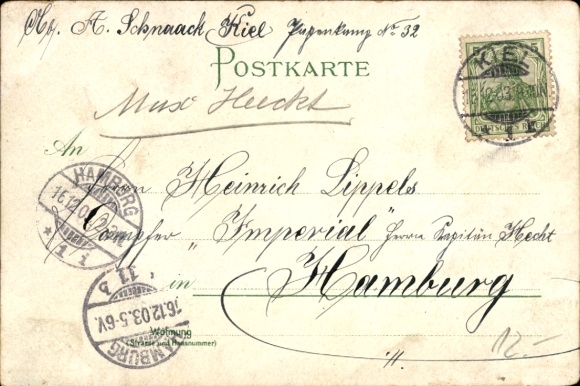 A. Schnaack, Kiel Papenkamp No 32
POSTKARTE
Max Heckt
An
Herrn Heinrich Lippels
Dampfer „Imperial" Herrn Kapitän Hecht
in Hamburg
Wohnung
(Strasse und Hausnummer)
12.-
5 5
DEUTSCHES REICH
KIEL
HAMBURG
16.12.03
1 i
11 b
16.12.03.5-6V.
HAMBURG